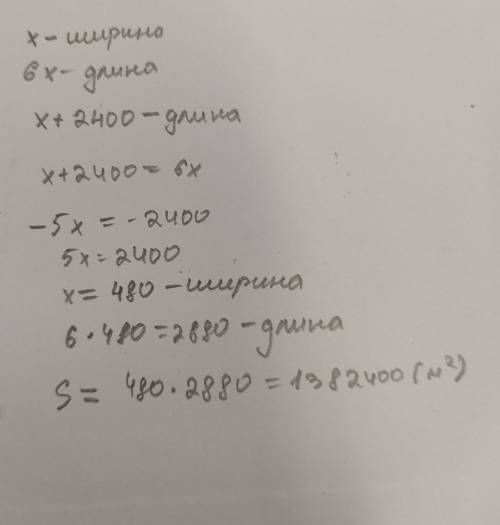 x - ширина
6x - длина
x + 2400 - длина
x + 2400 = 6x
-5x = -2400
5x = 2400
x = 480 - ширина
6 · 480 = 2880 - длина
S = 480 · 2880 = 1382400 (м²)